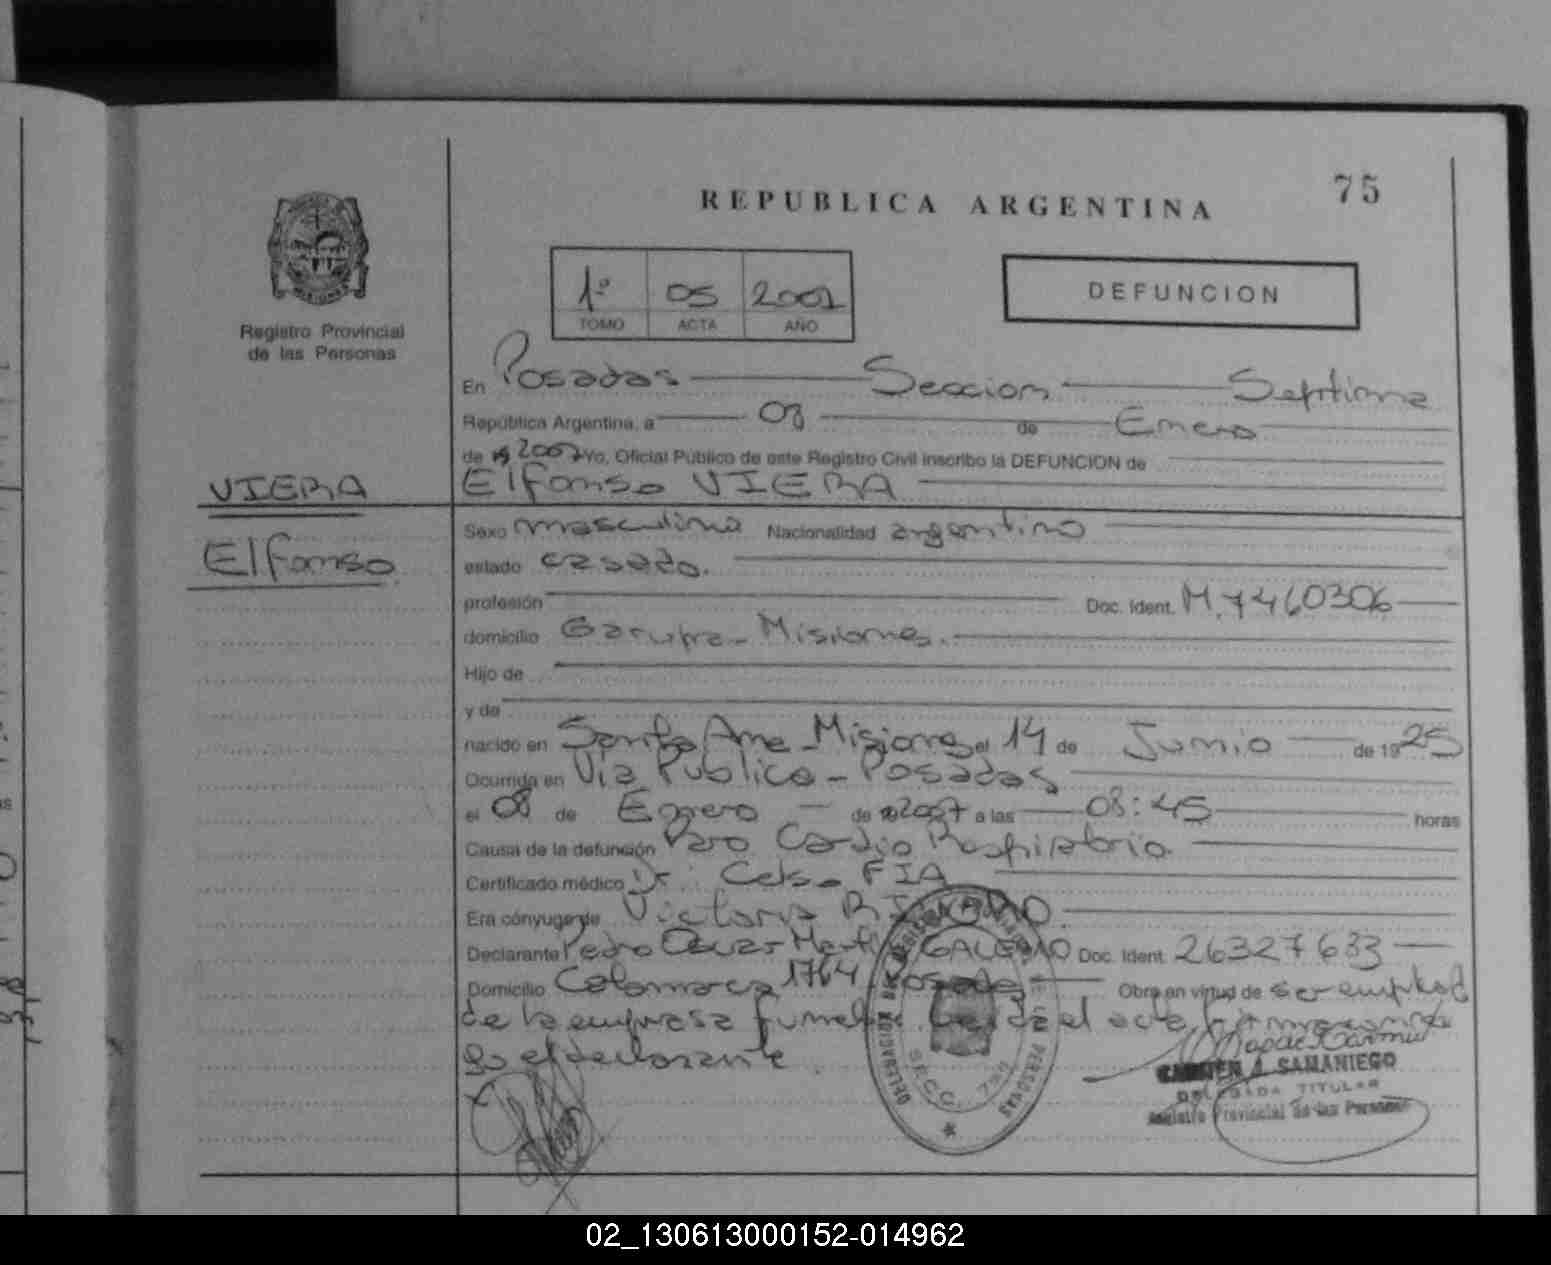 75
REPUBLICA ARGENTINA
Registro Provincial
de las Personas
1º 05 2007
TOMO ACTA AÑO
DEFUNCION
En Posadas Seccion Septima
República Argentina, a 08 de Enero
de 2007 Yo, Oficial Público de este Registro Civil inscribo la DEFUNCION de
VIERA
Elfonso
Elfonso VIERA
Sexo masculino Nacionalidad argentino
estado casado.
profesión Doc. Ident. M.7460306
domicilio Garupa - Misiones.
Hijo de
y de
nacido en Santa Ana - Misiones el 14 de Junio de 1925
Ocurrida en Via Publica - Posadas
el 08 de Enero de 2007 a las 08:45 horas
Causa de la defunción Paro Cardio Respiratorio
Certificado médico Dr. Celso FIA
Era cónyuge de Victoria
Declarante Pedro Oscar GALEANO Doc. Ident. 26327633
Domicilio Catamarca 1764 Posadas Obra en virtud de ser empleado
de la empresa el acta
el declarante
SECC. 7ma
DE LAS PERSONAS
CARMEN J. SAMANIEGO
DELEGADA TITULAR
Registro Provincial de las Personas
02_130613000152-014962